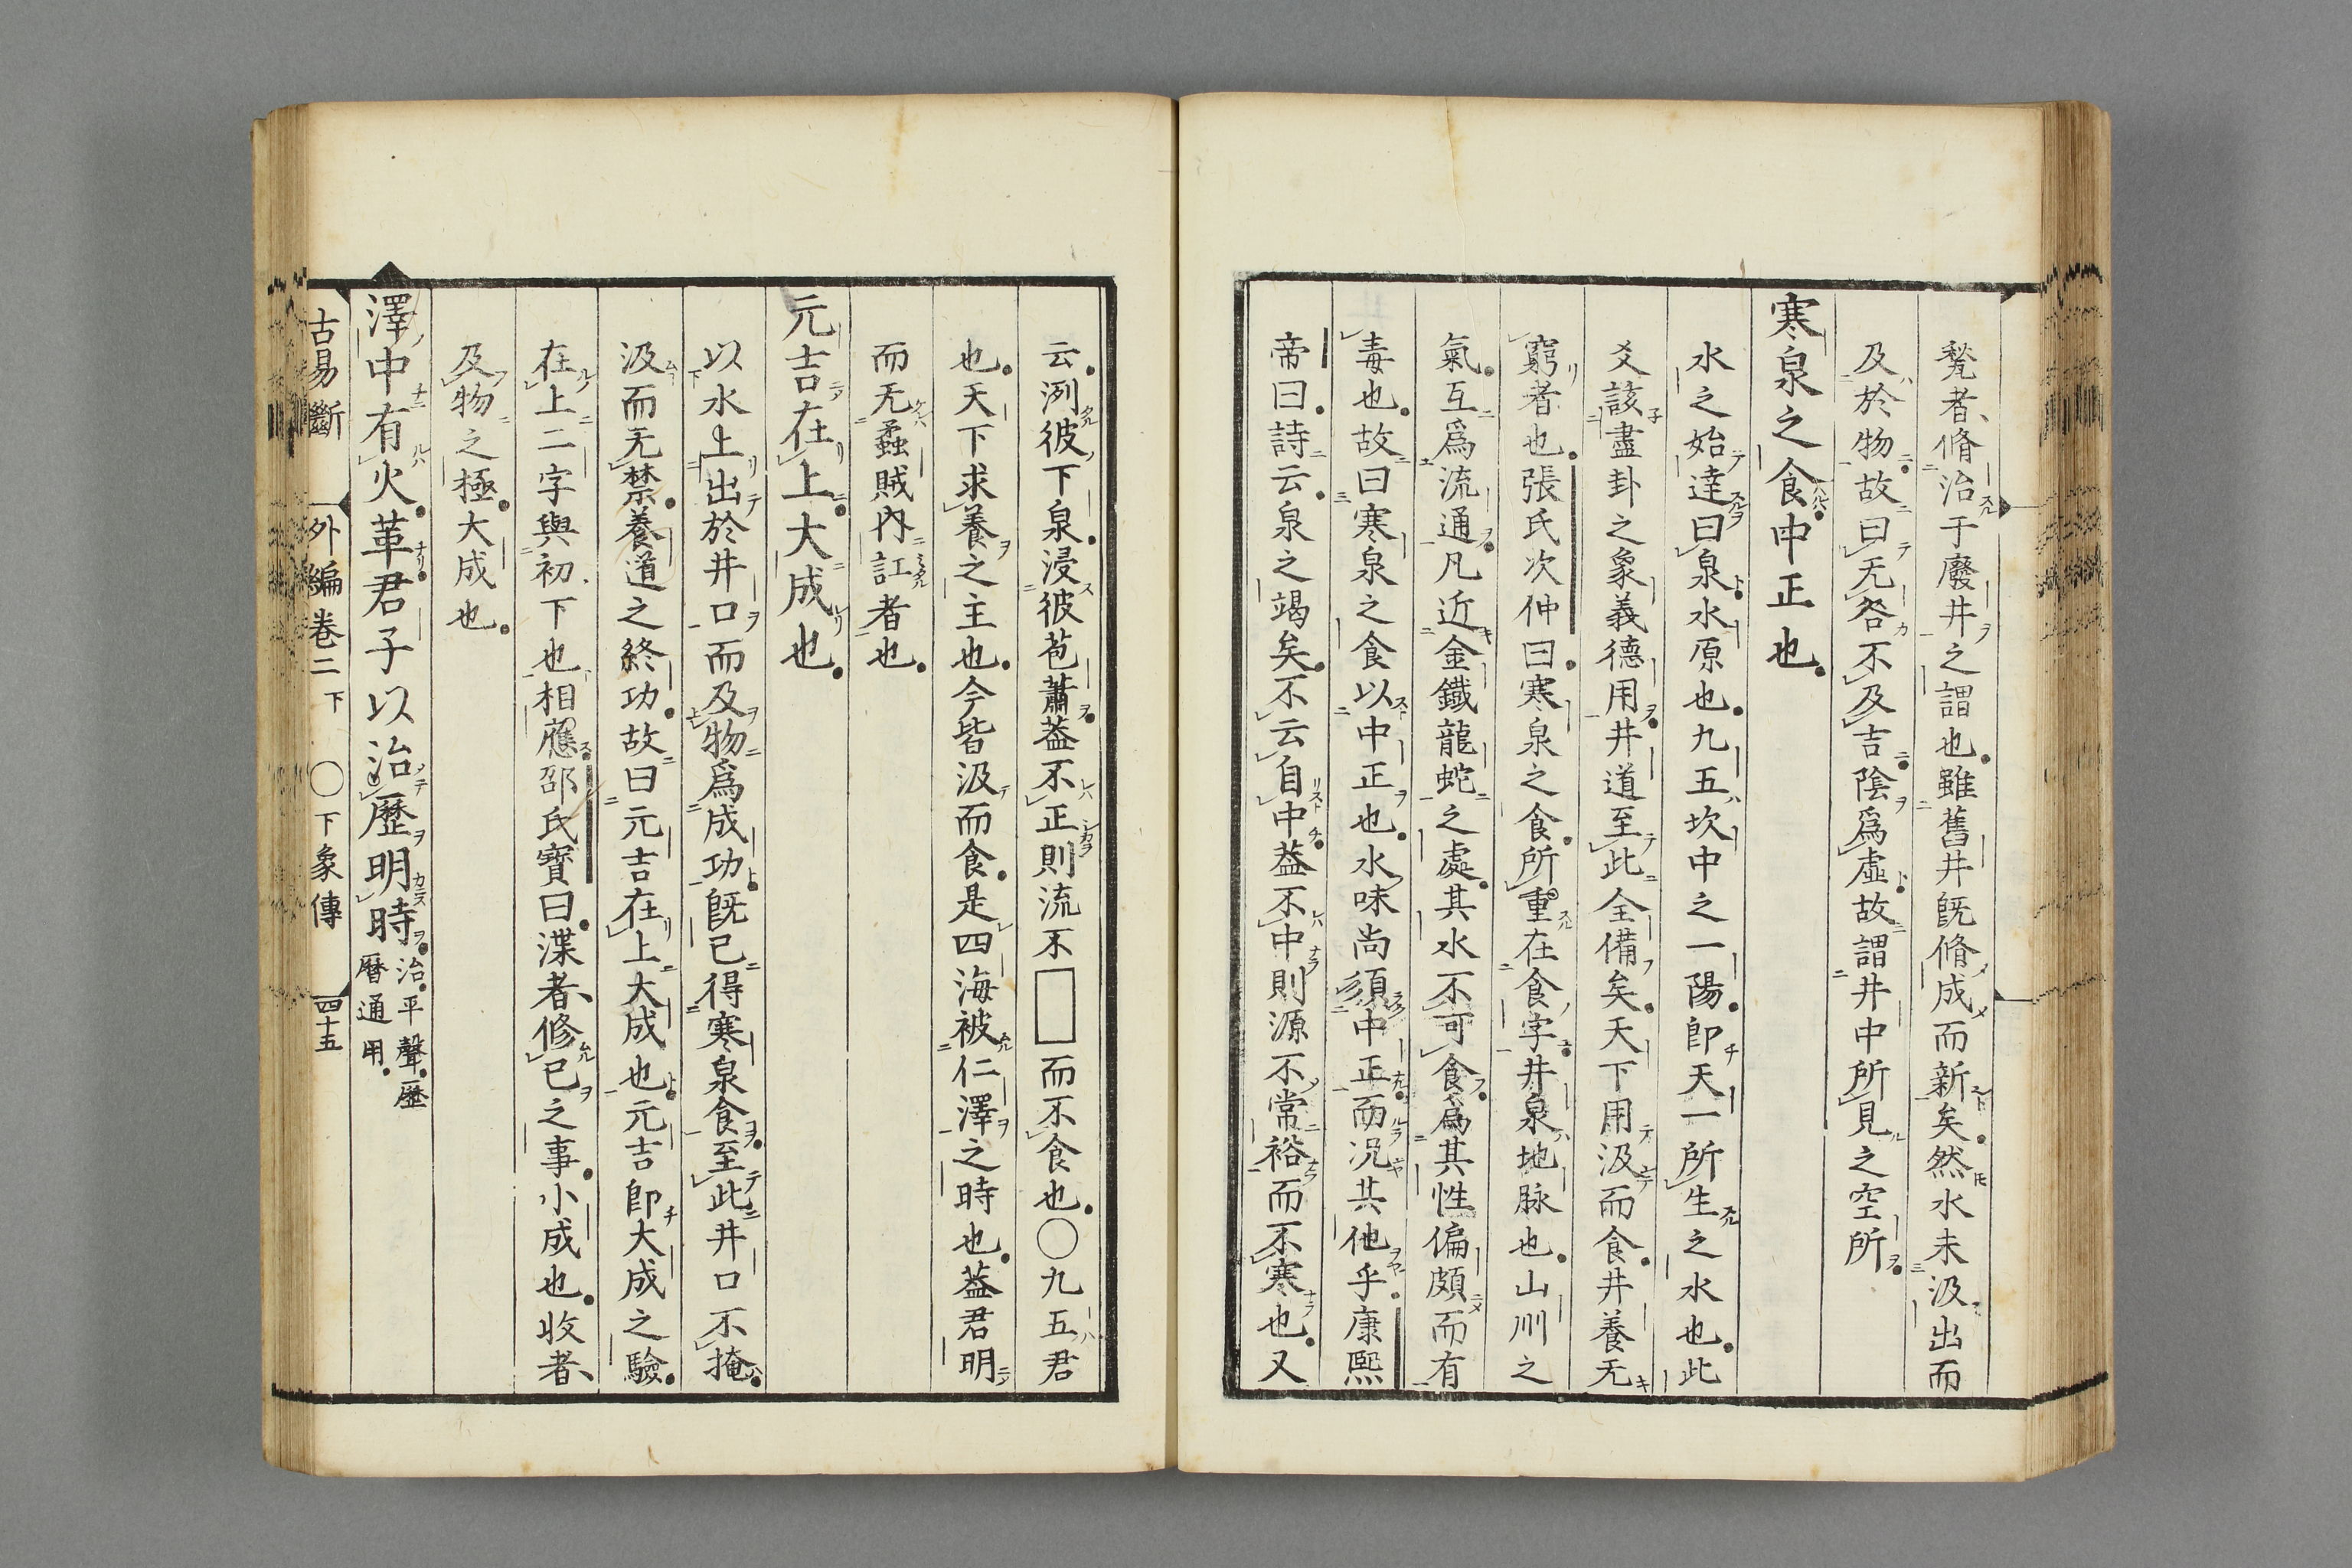 甃者脩治于廢井之謂也雖舊井旣脩成而新矣然水未汲出而
及於物故曰无咎不及吉陰爲虛故謂井中所見之空所
寒泉之食中正也
水之始達曰泉水原也九五坎中之一陽卽天一所生之水也此
爻該盡卦之象義德用井道至此全備矣天下用汲而食井養无
窮者也張氏次仲曰寒泉之食所重在食字井泉地脉也山川之
氣互爲流通凡近金鐵龍蛇之處其水不可食爲其性偏頗而有
毒也故曰寒泉之食以中正也水味尚須中正而况其他乎康熙
帝曰詩云泉之竭矣不云自中葢不中則源不常裕而不寒也又
云洌彼下泉浸彼苞蕭葢不正則流不□而不食也○九五君
也天下求養之主也今皆汲而食是四海被仁澤之時也葢君明
而无蟊賊內訌者也
元吉在上大成也
以水上出於井口而及物爲成功旣已得寒泉食至此井口不掩
汲而无禁養道之終功故曰元吉在上大成也元吉卽大成之驗
在上二字與初下也相應邵氏寶曰渫者修已之事小成也收者
及物之極大成也
澤中有火革君子以治歷明時治平聲歷曆通用
古易斷 外編卷二下 ○下象傳 四十五